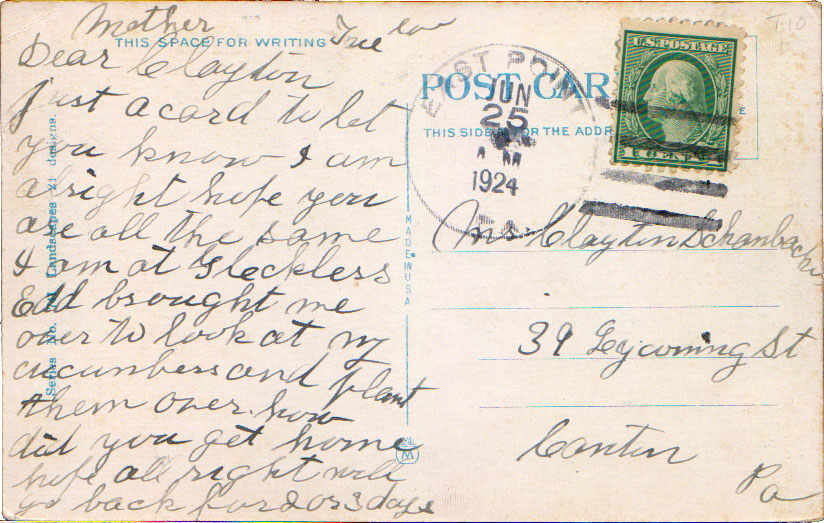 Mother
THIS SPACE FOR WRITING
Dear Clayton
just a card to let
you know I am
alright hope you
are all the same
I am at Gleckless
Edd brought me
over to look at my
cucumbers and plant
them over. how
did you get home
hope all right will
go back for 2 or 3 days
Series No. Landscapes 21 designs.
MADE IN USA
M
POST CAR
THIS SIDE FOR THE ADDR
EAST POINT
JUN
25
A M
1924
PA.
U.S. POSTAGE
CENT
T10
Mrs. Clayton Schambacher
39 Lycoming St
Canton
Pa